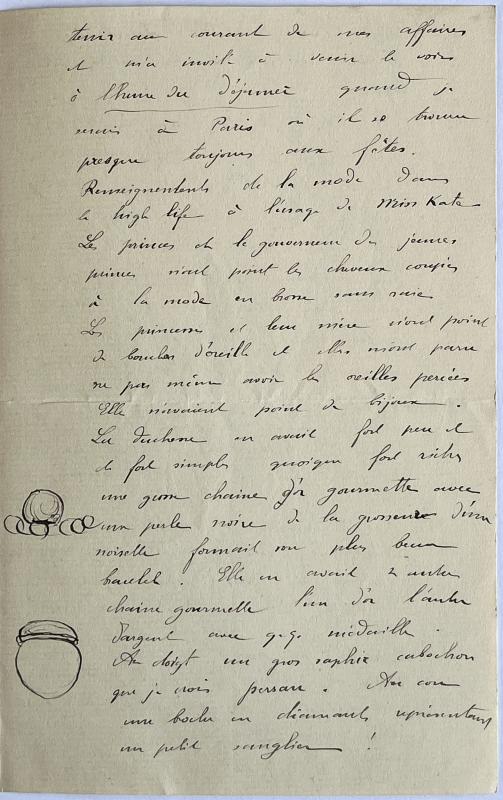 tenir au courant de mes affaires
et m'a invité à venir le voir
à l'heure du déjeuner quand je
serais à Paris où il se trouve
presque toujours aux fêtes.
Renseignements de la mode dans
le high life à l'usage de Miss Kate
Les princes et le gouverneur des jeunes
princes n'ont point les cheveux coupés
à la mode en brosse sans raie
Les princesses et leur mère n'ont point
de boucles d'oreille et elles m'ont paru
ne pas même avoir les oreilles percées
Elles n'avaient point de bijoux.
La duchesse en avait fort peu et
de fort simples quoique fort riches
une grosse chaine d'or gourmette avec
une perle noire de la grosseur d'une
noisette formait son plus beau
bracelet. Elle en avait 2 autres
chaine gourmette l'un d'or l'autre
d'argent avec q.q. médaille.
Au doigt un gros saphir cabochon
que je crois persan. Au cou
une broche en diamants représentant
un petit sanglier !